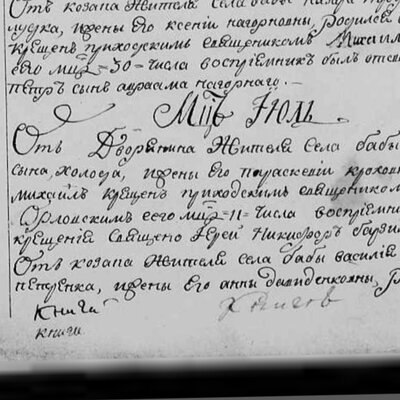 Отъ козака жителя села бабы назара
луцка, ижены его ксеніи нагорновны, родился
крещенъ приходскимъ священикомъ Михаил
сего мцⷭ҇а =30= числа воспріемникъ былъ отста
петръ сынъ авраама нагорнаго.
Мцⷭ҇ъ Іюль
Отъ Дворянина жителя села бабы
сына, холода, ижены его параскевіи
михаилъ крещенъ приходскимъ священиком
Орловскимъ сего мцⷭ҇а =11= числа воспріемни
крещенія священо Іерей Никифоръ
Отъ козака жителя села бабы василія
петренка, ижены его анны демиденковны,
книги
книги